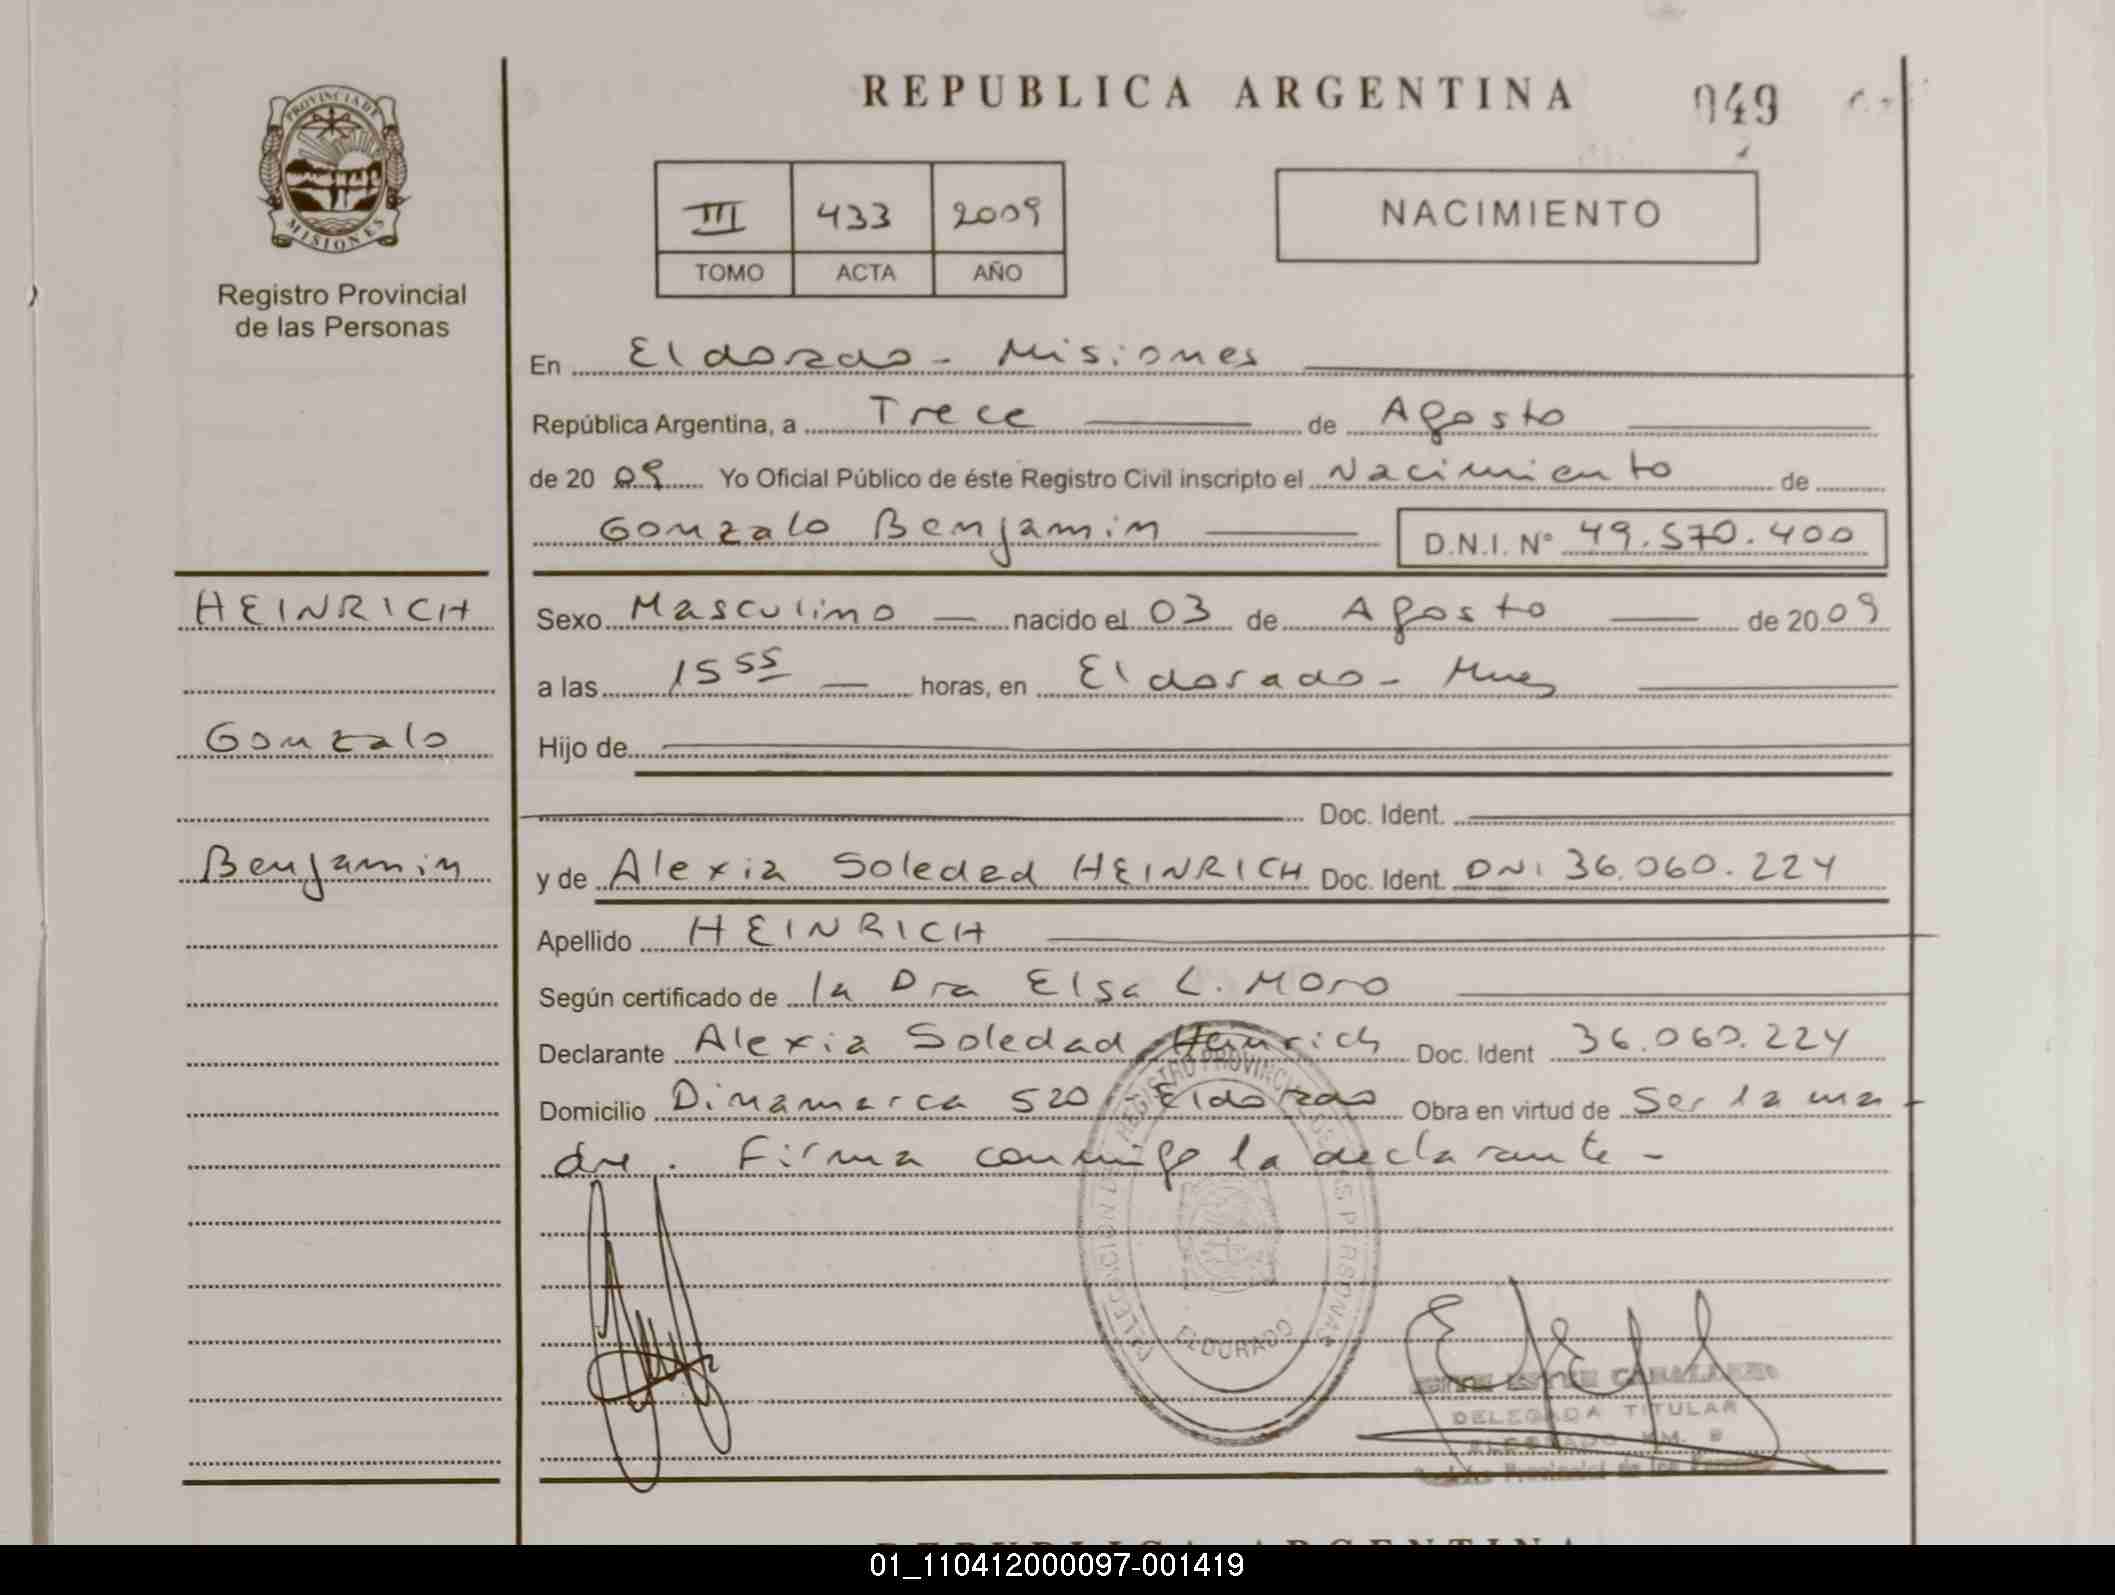 REPUBLICA ARGENTINA
049
PROVINCIA DE
MISIONES
Registro Provincial
de las Personas
III 433 2009
TOMO ACTA AÑO
NACIMIENTO
En Eldorado - Misiones
República Argentina, a Trece de Agosto
de 20 09 Yo Oficial Público de éste Registro Civil inscripto el Nacimiento de
Gonzalo Benjamin D.N.I. N° 49.570.400
HEINRICH
Gonzalo
Benjamin
Sexo Masculino nacido el 03 de Agosto de 20 09
a las 15 55 horas, en Eldorado - Mnes
Hijo de
Doc. Ident.
y de Alexia Soledad HEINRICH Doc. Ident. DNI 36.060.224
Apellido HEINRICH
Según certificado de la Dra Elsa L. Moro
Declarante Alexia Soledad Heinrich Doc. Ident 36.060.224
Domicilio Dinamarca 520 Eldorado Obra en virtud de Ser la ma
dre. Firma conmigo la declarante -
DELEGACION DEL REGISTRO PROVINCIAL DE LAS PERSONAS
ELDORADO
DELEGADA TITULAR
ELDORADO KM. 9
Provincial de las Personas
REPUBLICA ARGENTINA
01_110412000097-001419